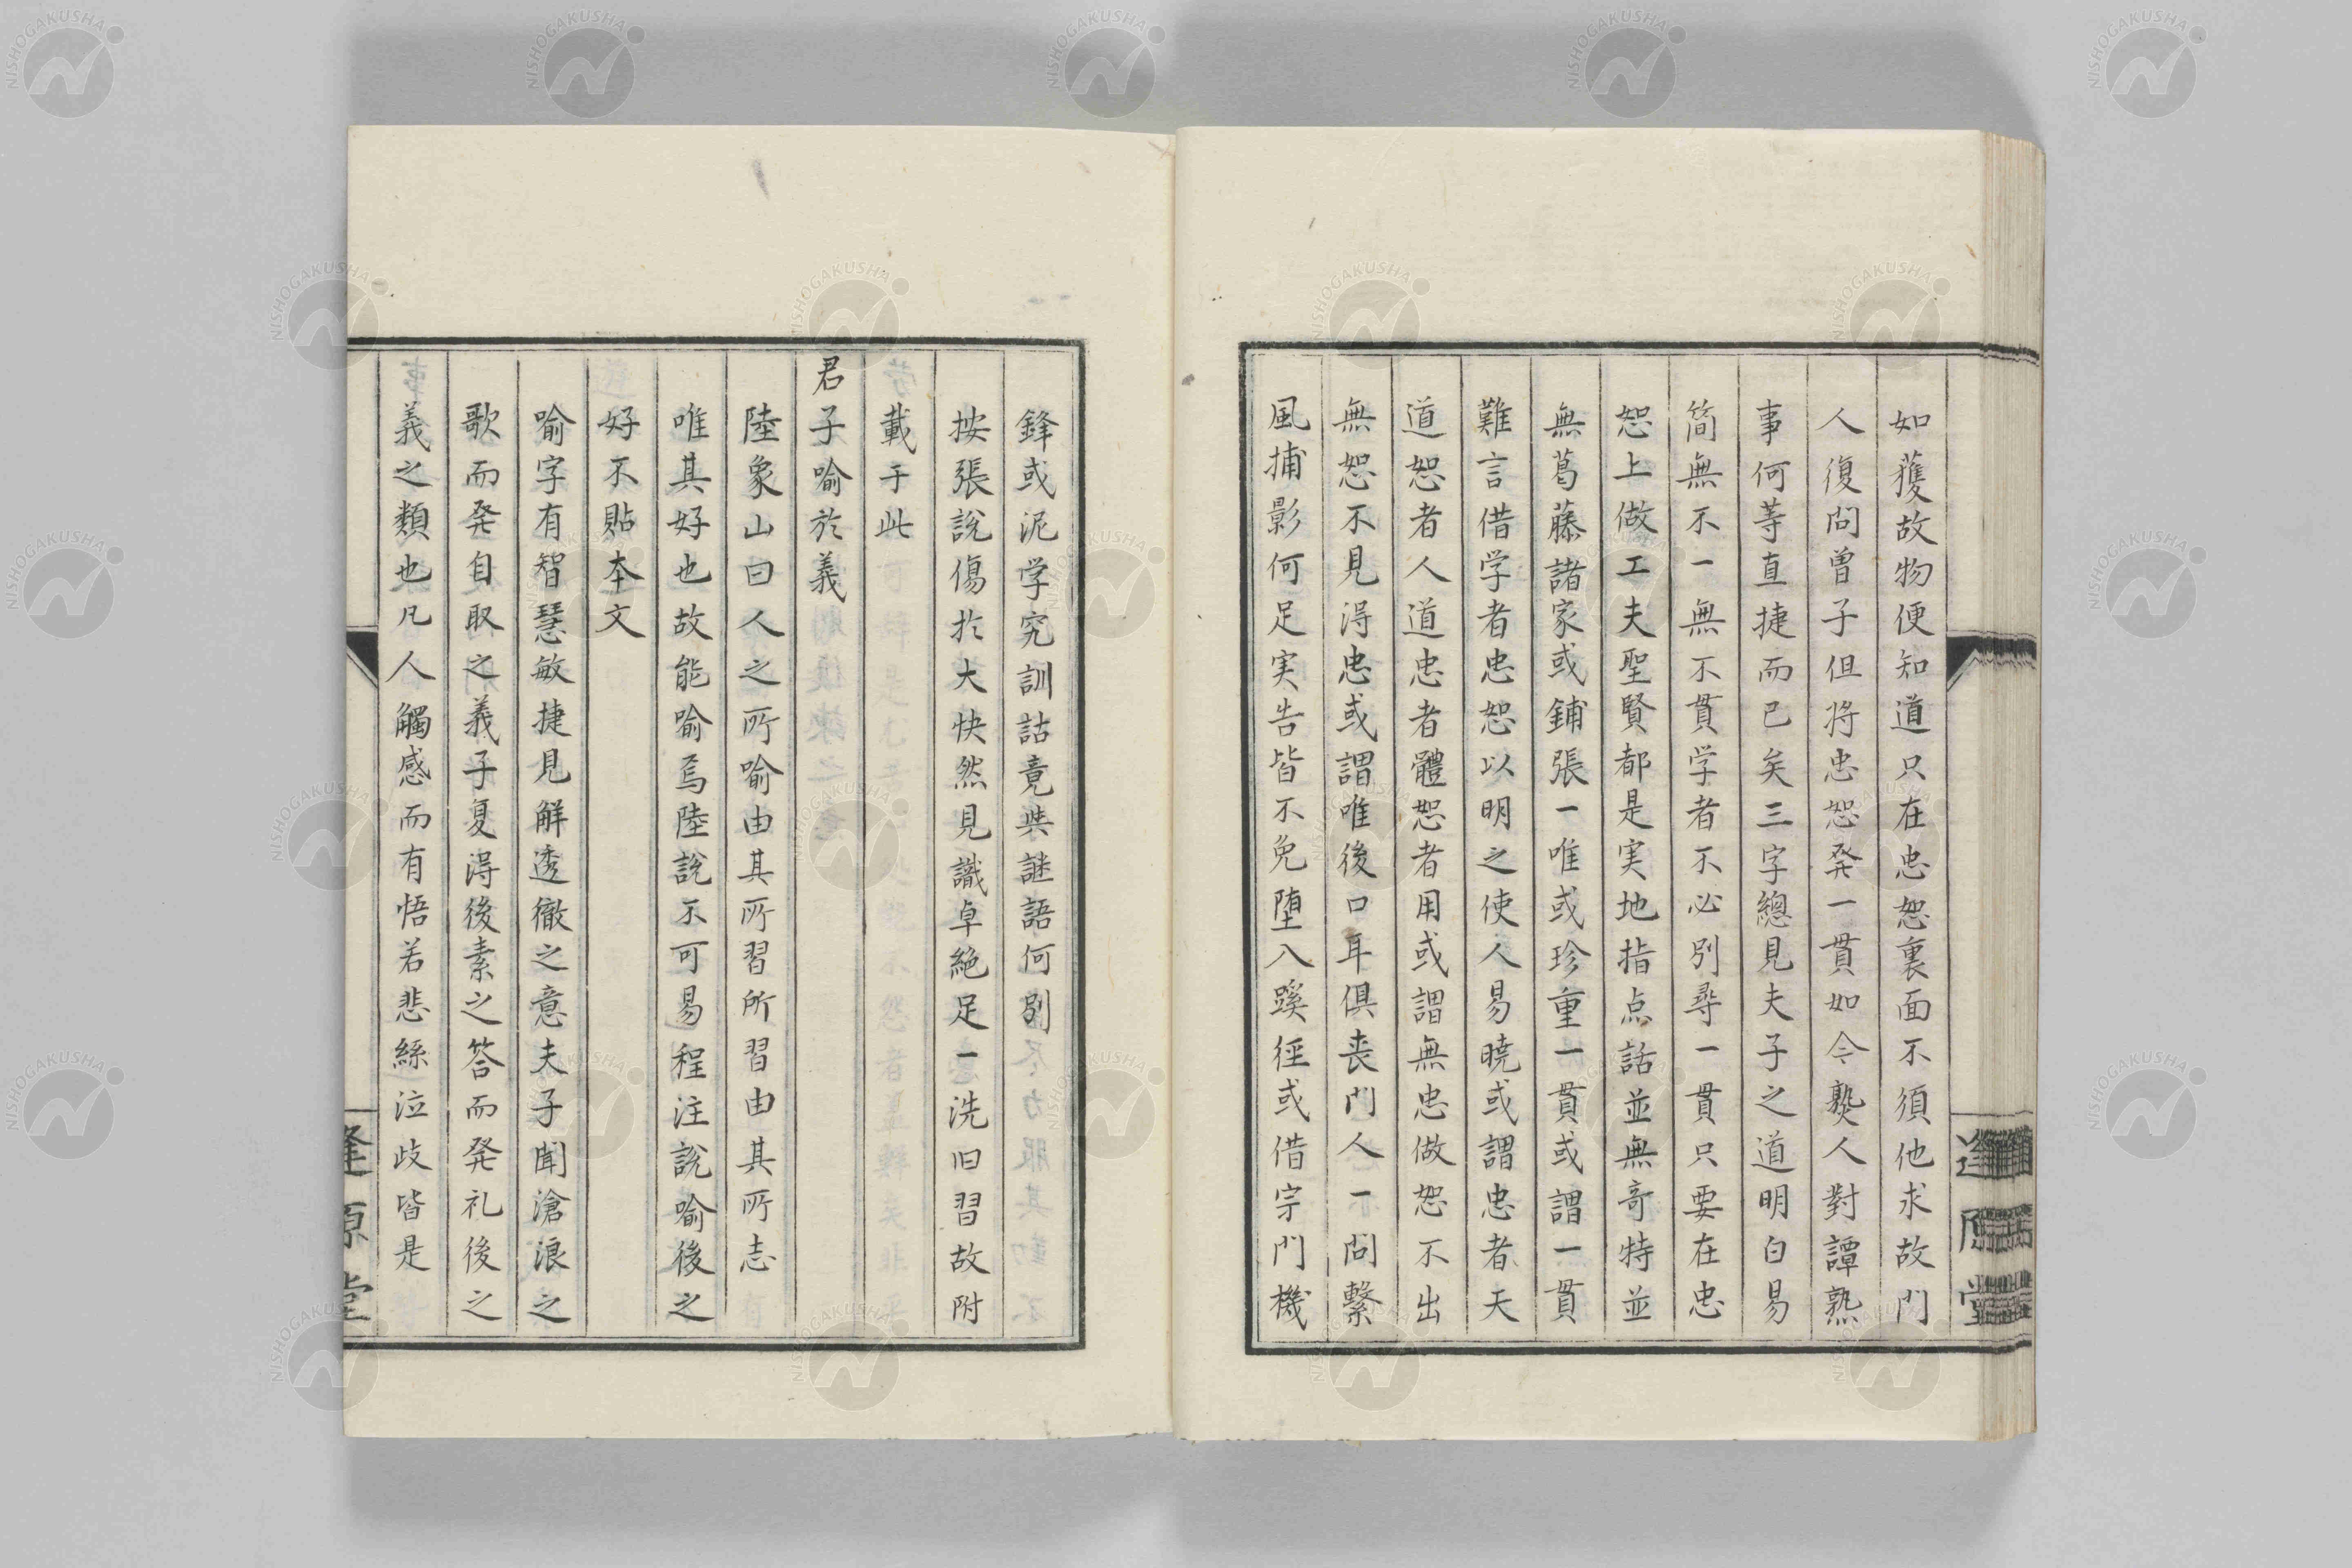 如獲故物便知道只在忠恕裏面不須他求故門
人復問曽子但将忠恕発一貫如令𤍨人對譚熟
事何等直捷而已矣三字總見夫子之道明白易
简無不一無不貫学者不必別尋一貫只要在忠
恕上做工夫聖賢都是実地指点話並無奇特並
無葛藤諸家或鋪張一唯或珍重一貫或謂一貫
難言借学者忠恕以明之使人易暁或謂忠者天
道恕者人道忠者體恕者用或謂無忠做恕不出
無恕不見得忠或謂唯後口耳俱喪門人一問繫
風捕影何足実告皆不免堕入蹊径或借宗門機
逢原堂
鋒或泥学究訓詁竟与謎語何別
按張説傷於大快然見識卓絶足一洗旧習故附
載于此
君子喻於義
陸象山曰人之所喻由其所習所習由其所志
唯其好也故能喻焉陸説不可易程注説喻後之
好不貼本文
喻字有智慧敏捷見解透徹之意夫子聞滄浪之
歌而発自取之義子夏得後素之答而発礼後之
義之類也凡人觸感而有悟若悲絲泣歧皆是
逢原堂